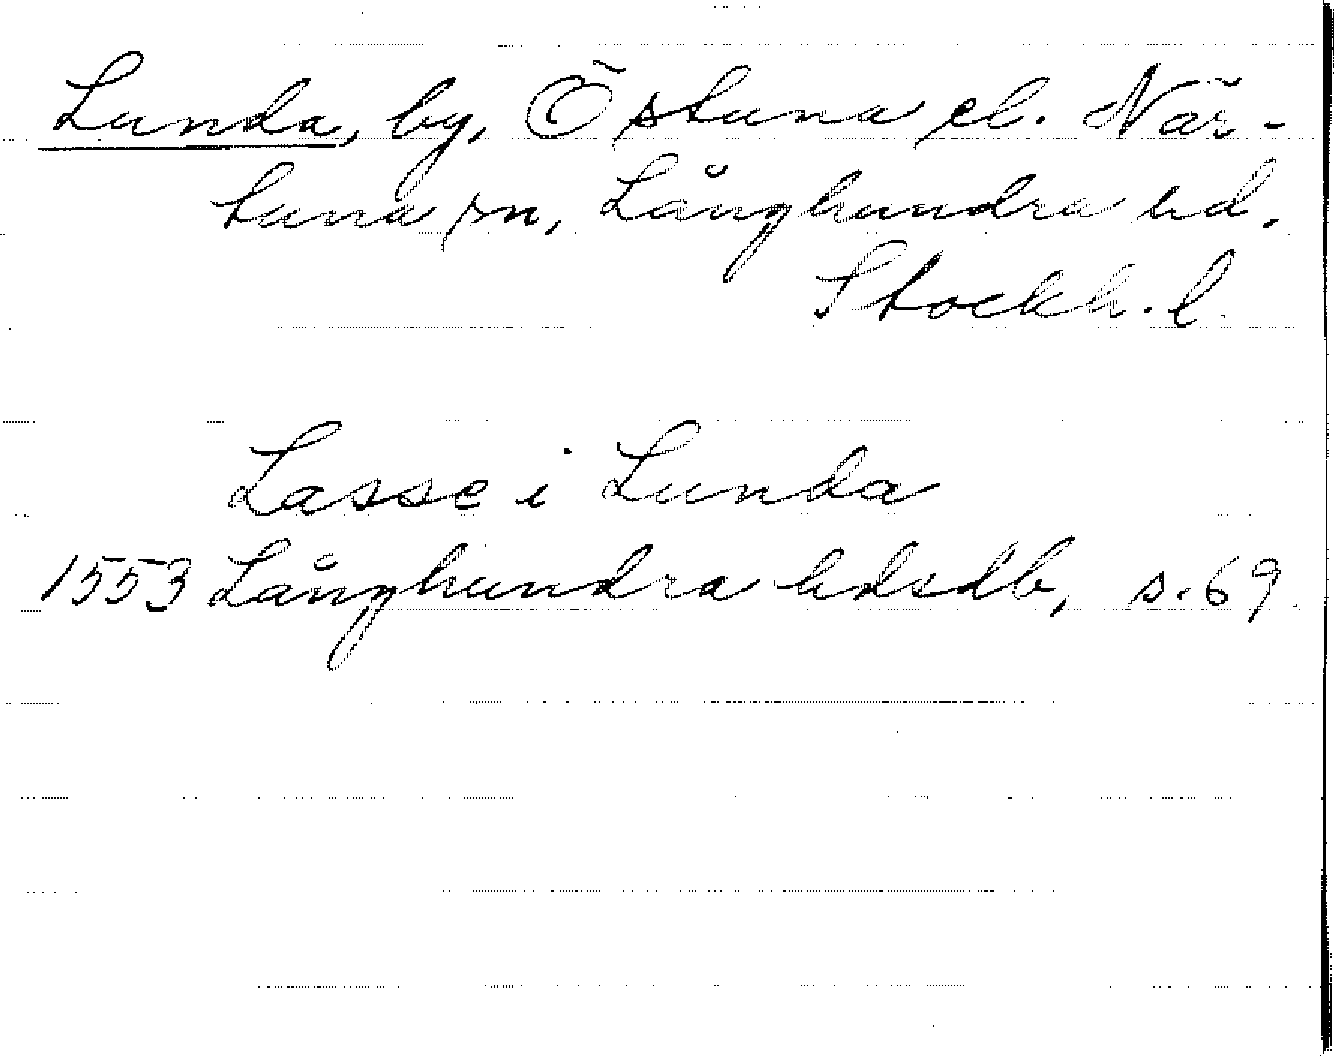 Lunda, by, Östuna el. När-
tuna sn, Långhundra hd.
Stockh. l.
Lasse i Lunda
1553 Långhundra hdsdb, s. 69